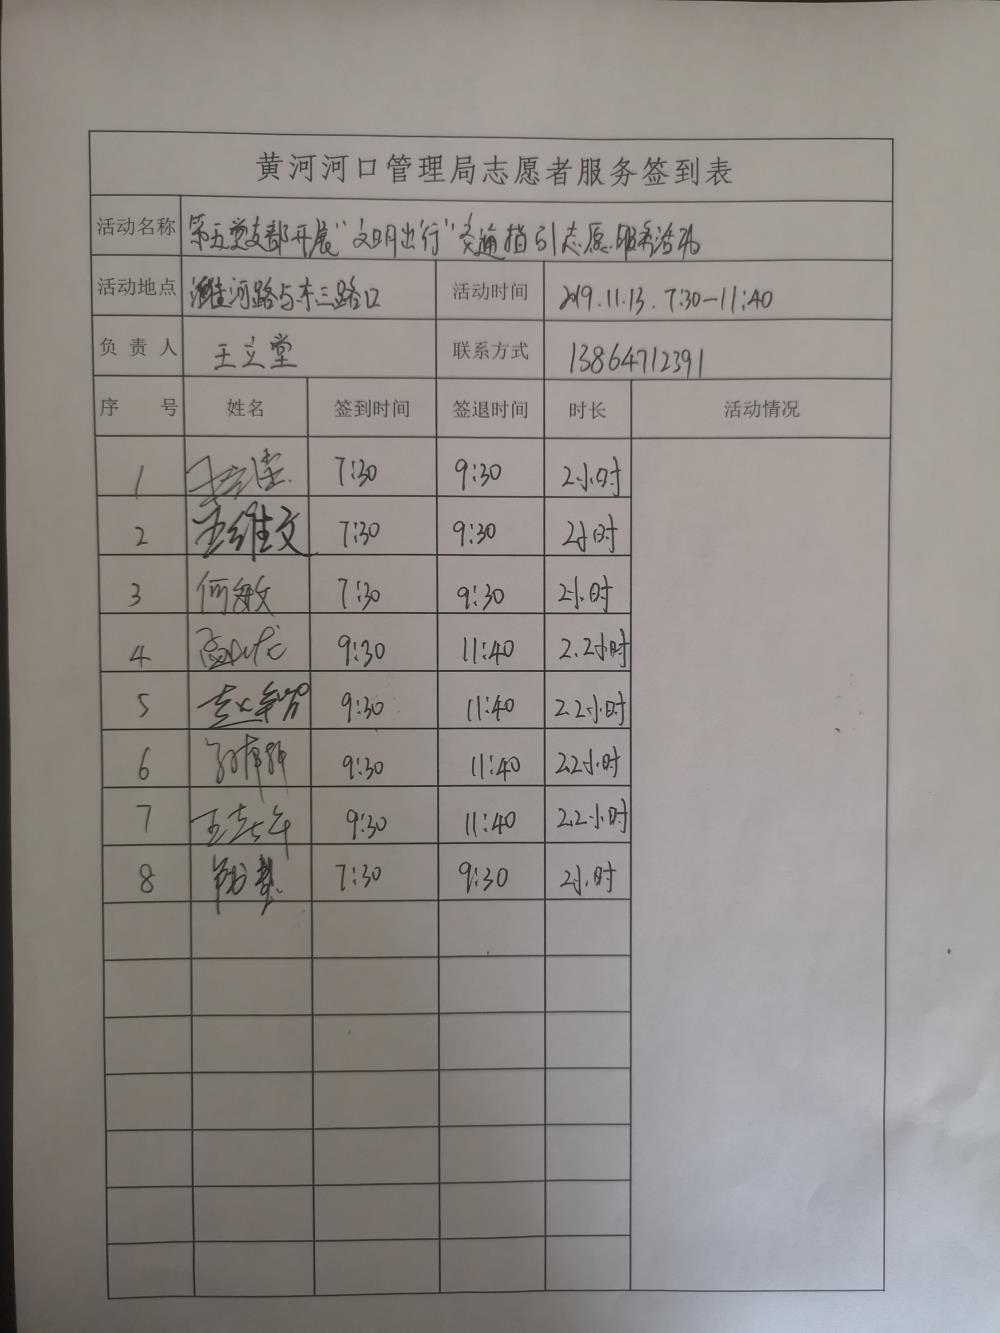 黄河河口管理局志愿者服务签到表
活动名称 第五党支部开展"文明出行"交通指引志愿服务活动
活动地点 潍河路与东三路口 活动时间 2019.11.13. 7:30-11:40
负责人 王立堂 联系方式 13864712391
序号 姓名 签到时间 签退时间 时长 活动情况
1 王立堂 7:30 9:30 2小时
2 王维文 7:30 9:30 2小时
3 何敏 7:30 9:30 2小时
4 9:30 11:40 2.2小时
5 9:30 11:40 2.2小时
6 9:30 11:40 2.2小时
7 9:30 11:40 2.2小时
8 7:30 9:30 2小时